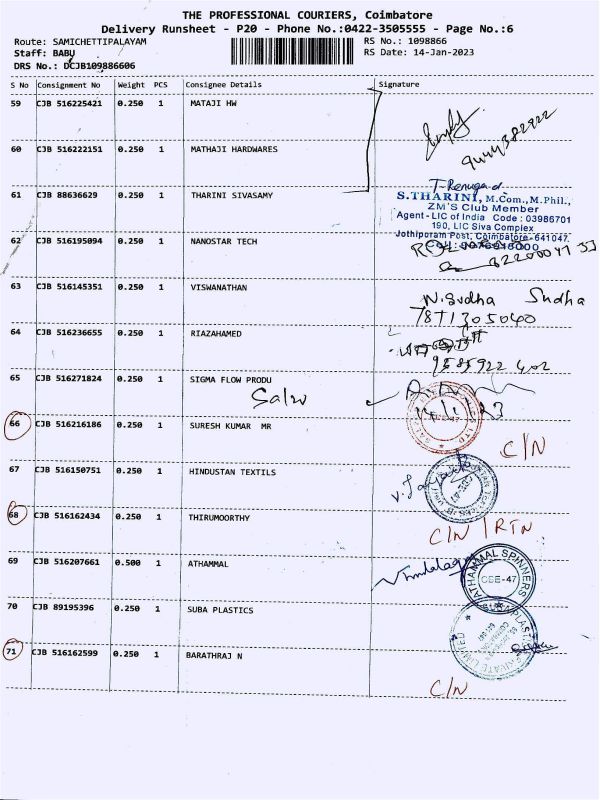 THE PROFESSIONAL COURIERS, Coimbatore
Delivery Runsheet - P20 - Phone No.:0422-3505555 - Page No.:6
Route: SAMICHETTIPALAYAM RS No.: 1098866
Staff: BABU RS Date: 14-Jan-2023
DRS No.: DCJB109886606
S No Consignment No Weight PCS Consignee Details Signature
59 CJB 516225421 0.250 1 MATAJI HW
60 CJB 516222151 0.250 1 MATHAJI HARDWARES
61 CJB 88636629 0.250 1 THARINI SIVASAMY
S.THARINI, M.Com., M.Phil.,
ZM'S Club Member
Agent - LIC of India Code : 03986701
190, LIC Siva Complex
Jothipuram Post, Coimbatore - 641047.
62 CJB 516195094 0.250 1 NANOSTAR TECH
63 CJB 516145351 0.250 1 VISWANATHAN
N. Sudha Sudha
7871305040
64 CJB 516236655 0.250 1 RIAZAHAMED
9585922402
65 CJB 516271824 0.250 1 SIGMA FLOW PRODU
66 CJB 516216186 0.250 1 SURESH KUMAR MR
C/N
67 CJB 516150751 0.250 1 HINDUSTAN TEXTILS
68 CJB 516162434 0.250 1 THIRUMOORTHY
C/N / RTN
69 CJB 516207661 0.500 1 ATHAMMAL
ATHAMMAL SPINNERS
CBE-47
70 CJB 89195396 0.250 1 SUBA PLASTICS
71 CJB 516162599 0.250 1 BARATHRAJ N
C/N